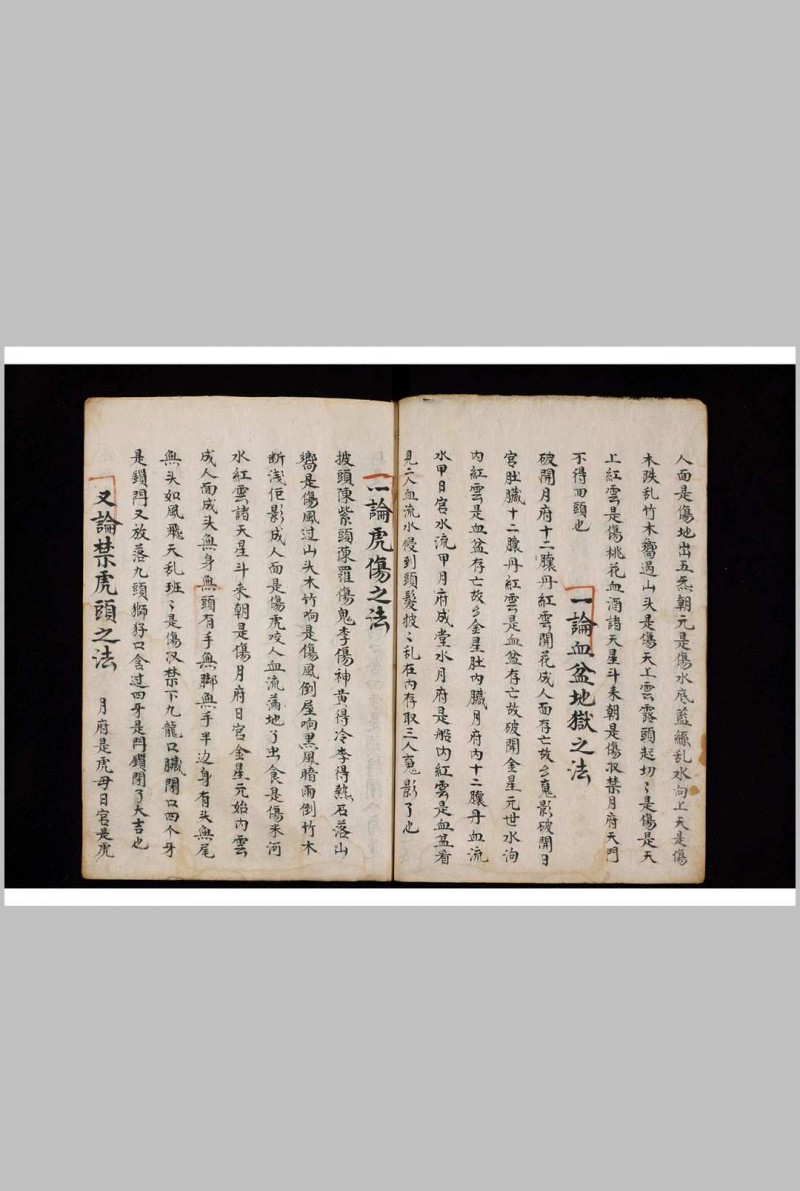 人面是傷地出五炁朝元是傷水底藍絲乱水向上天是傷
木跌乱竹木嚮過山头是傷天上雲露頭起切〻是傷是天
上紅雲是傷桃花血酒諸天星斗来朝是傷収禁月府天門
不得回頭也
一論血盆地獄之法
破開月府十二臟丹紅雲開花成人面存亡故乡䰟影破開日
宫肚臟十二臟丹紅雲是血盆存亡故破開金星元世水沟
内紅雲是血盆存亡故乡金星肚内臟月府内十二臟丹血流
水甲日宫水流甲月府成堂水月府是船内紅雲是血盆看
見二人血流水侵到頭髮披〻乱在内存取三人䰟影了也
一論虎傷之法
披頭陳紫頭陳羅傷鬼李傷神黄得冷李得热石落山
嚮是傷風过山头木竹响是傷風倒屋响黒風暗雨倒竹木
断浅佢影成人面是傷虎咬人血流蒲地了出食是傷米河
水紅雲諸天星斗来朝是傷月府日宫金星元始内雲
成人面成头無身無頭有手無脚無手半边身有头無尾
無头如風飛天乱班〻是傷収禁下九龍口臟開口四个牙
是鎖門又放落九頭獅狩口含过四牙是門鎖閉了大吉也
又論禁虎頭之法
月府是虎母日宫是虎